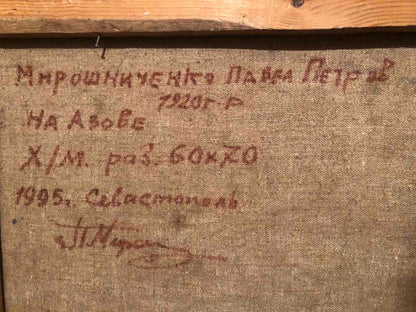 Мирошниченко Павел Петров
1920 г. р
На Азове
Х/М. раз. 60x70
1995г. Севастополь